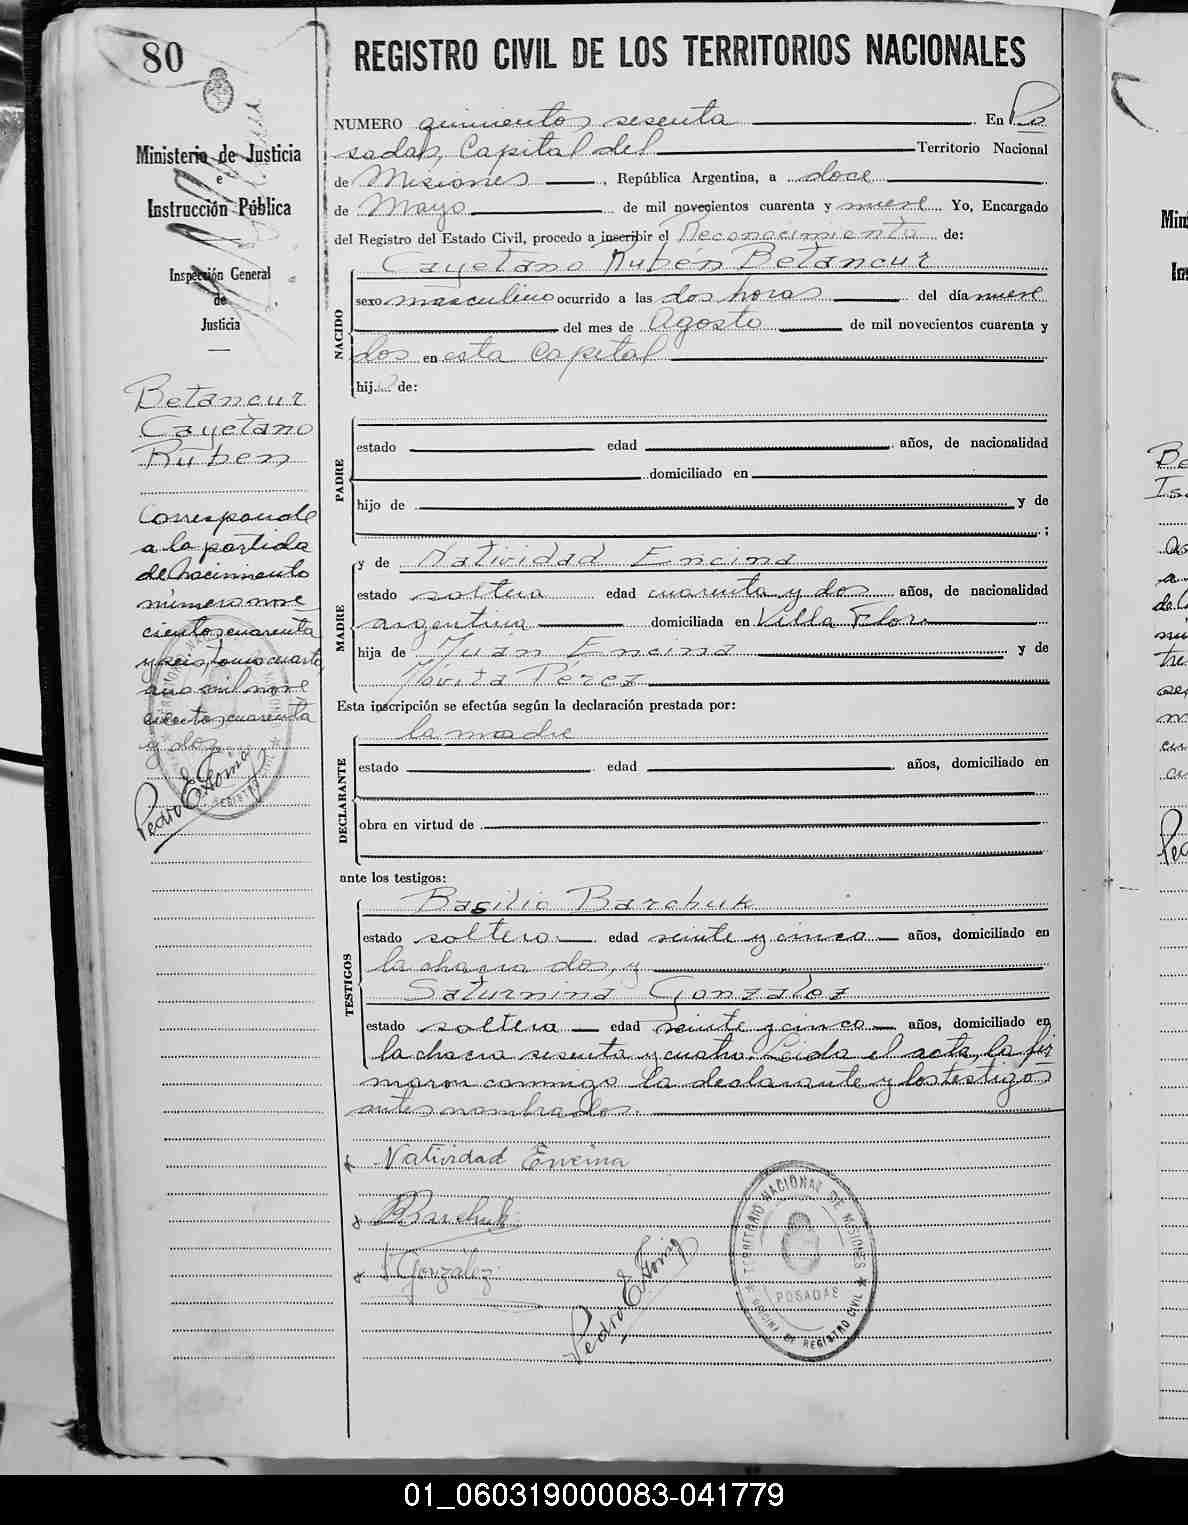 80
REGISTRO CIVIL DE LOS TERRITORIOS NACIONALES
Ministerio de Justicia
e
Instrucción Pública
Inspección General
de
Justicia
Betancur
Cayetano
Rubén
Corresponde
a la partida
de Nacimiento
número nove
cientos cuarenta
y seis, tomo cuarto
año mil nove
cientos cuarenta
y dos
Pedro E.
NUMERO quinientos sesenta En Po
sadas, Capital del Territorio Nacional
de Misiones, República Argentina, a doce
de Mayo de mil novecientos cuarenta y nueve Yo, Encargado
del Registro del Estado Civil, procedo a inscribir el Reconocimiento de:
NACIDO
Cayetano Rubén Betancur
sexo masculino ocurrido a las dos horas del día nueve
del mes de Agosto de mil novecientos cuarenta y
dos en esta Capital
hij de:
PADRE
estado edad años, de nacionalidad
domiciliado en
hijo de y de
;
MADRE
y de Natividad Encina
estado soltera edad cuarenta y dos años, de nacionalidad
argentina domiciliada en Villa Flor
hija de Juan Encina y de
Jovita Pérez
Esta inscripción se efectúa según la declaración prestada por:
DECLARANTE
la madre
estado edad años, domiciliado en
obra en virtud de
ante los testigos:
TESTIGOS
Basilio Barchuk
estado soltero edad veinte y cinco años, domiciliado en
la chacra dos, y
Saturnina González
estado soltera edad veinte y cinco años, domiciliado en
la chacra sesenta y cuatro. Leida el acta, la fir
maron conmigo la declarante y los testigos
antes nombrados.
Natividad Encina
BBarchuk
S González
Pedro E.
TERRITORIO NACIONAL DE MISIONES
POSADAS
OFICINA DE REGISTRO CIVIL
Min
In
Be
Isa
01_060319000083-041779